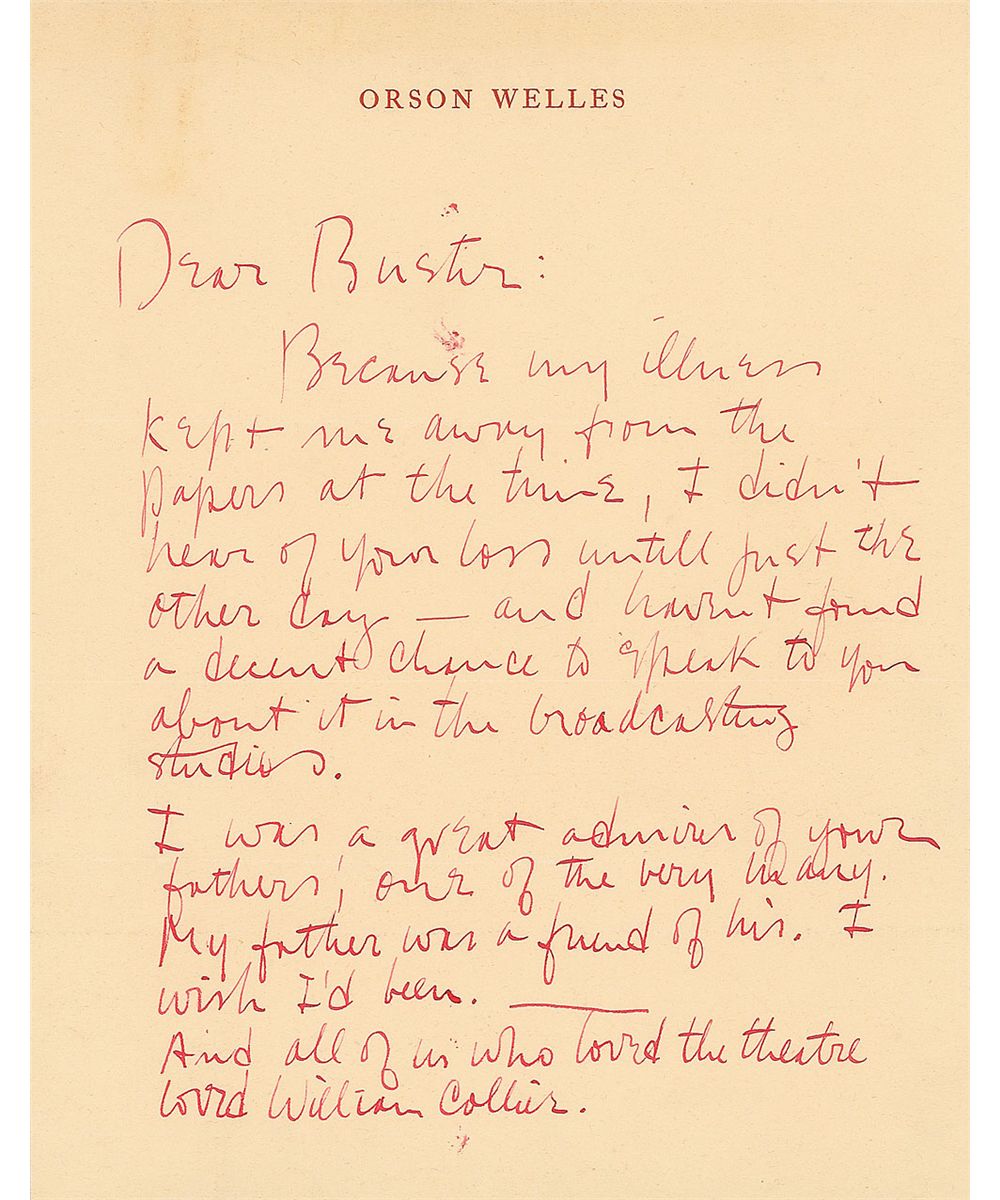 ORSON WELLES
Dear Buster:
Because my illness
kept me away from the
papers at the time, I didn't
hear of your loss untill just the
other day — and haven't found
a decent chance to speak to you
about it in the broadcasting
studios.
I was a great admirer of your
fathers', one of the very many.
My father was a friend of his. I
wish I'd been. —
And all of us who loved the theatre
loved William Collier.